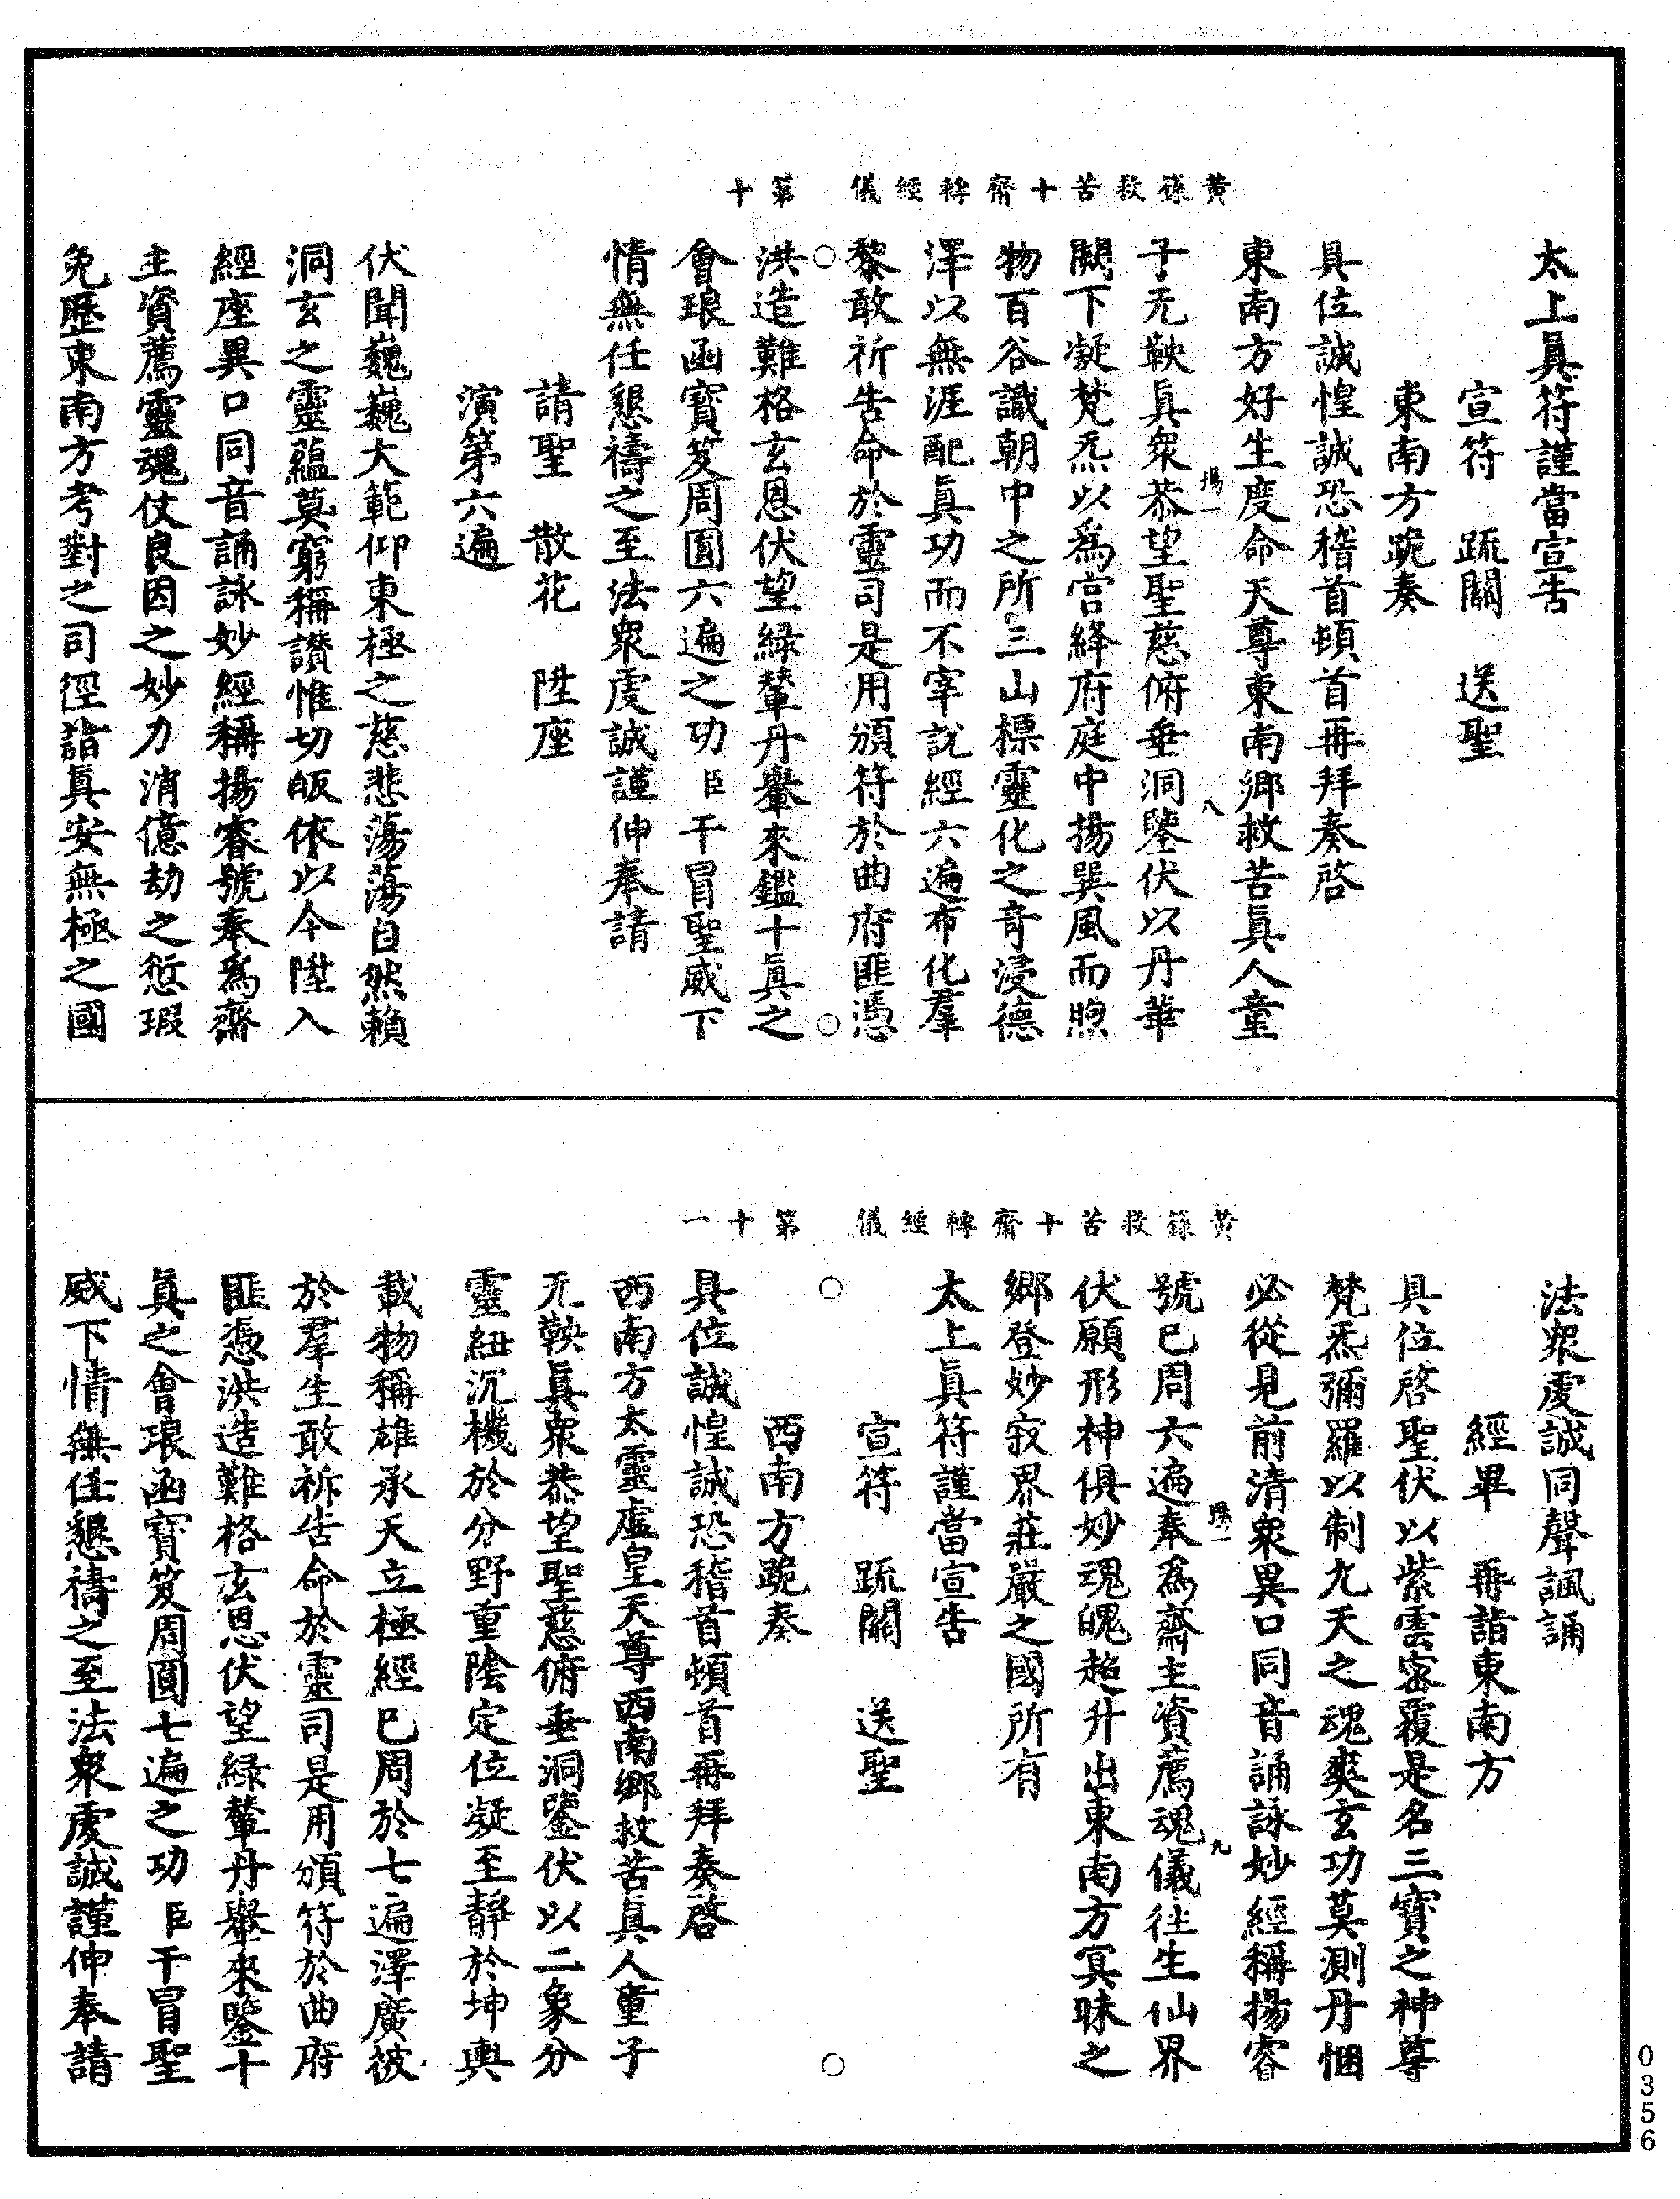 黃籙救苦十齋轉經儀　第十
太上眞符謹當宣告
宣符　疏關　送聖
東南方跪奏
具位誠惶誠恐稽首頓首再拜奏啓
東南方好生度命天尊東南鄉救苦眞人童
子无鞅眞衆恭望聖慈俯垂洞鑒伏以丹華
闕下凝梵炁以爲宫絳府庭中揚巽風而煦
物百谷識朝中之所三山標靈化之奇浸德
澤以無涯配眞功而不宰説經六遍布化羣
黎敢祈告命於靈司是用頒符於曲府匪憑
洪造難格玄恩伏望綠輦丹轝來鑑十眞之
會琅函寶笈周圓六遍之功臣干冒聖威下
情無任懇禱之至法衆虔誠謹伸奉請
請聖　散花　陞座
演第六遍
伏聞巍巍大範仰東極之慈悲蕩蕩自然賴
洞玄之靈蘊莫窮稱讃惟切皈依以今陞入
經座異口同音誦詠妙經稱揚睿號奉爲齋
主資薦靈魂仗良因之妙力消億劫之愆瑕
免歷東南方考對之司徑詣眞安無極之國
黃籙救苦十齋轉經儀　第十一
法衆虔誠同聲諷誦
經畢　再詣東南方
具位啓聖伏以紫雲密覆是名三寶之神尊
梵炁彌羅以制九天之魂爽玄功莫測丹悃
必從見前清衆異口同音誦詠妙經稱揚睿
號已周六遍奉爲齋主資薦魂儀往生仙界
伏願形神俱妙魂魄超升出東南方冥昧之
鄉登妙寂界莊嚴之國所有
太上眞符謹當宣告
宣符　疏關　送聖
西南方跪奏
具位誠惶誠恐稽首頓首再拜奏啓
西南方太靈虛皇天尊西南鄉救苦眞人童子
无鞅眞衆恭望聖慈俯垂洞鑒伏以二象分
靈紐沉機於分野重陰定位凝至靜於坤輿
載物稱雄承天立極經已周於七遍澤廣被
於羣生敢祈告命於靈司是用頒符於曲府
匪憑洪造難格玄恩伏望綠輦丹轝來鑒十
眞之會琅函寶笈周圓七遍之功臣干冒聖
威下情無任懇禱之至法衆虔誠謹伸奉請
0356